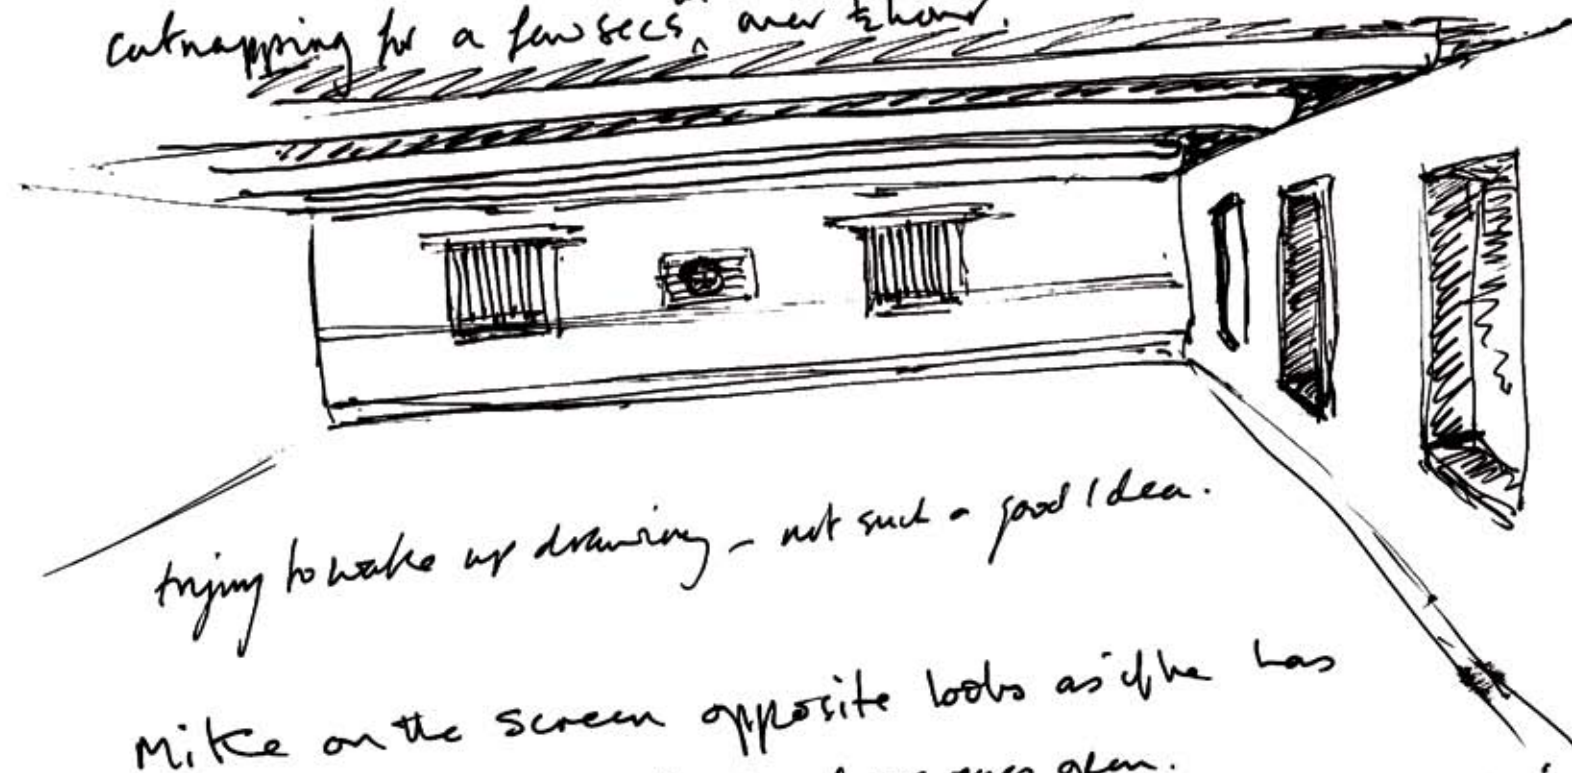 catnapping for a few secs over ½ hour.
trying to wake up drawing – not such a good idea.
Mike on the screen opposite looks as if he has
open.